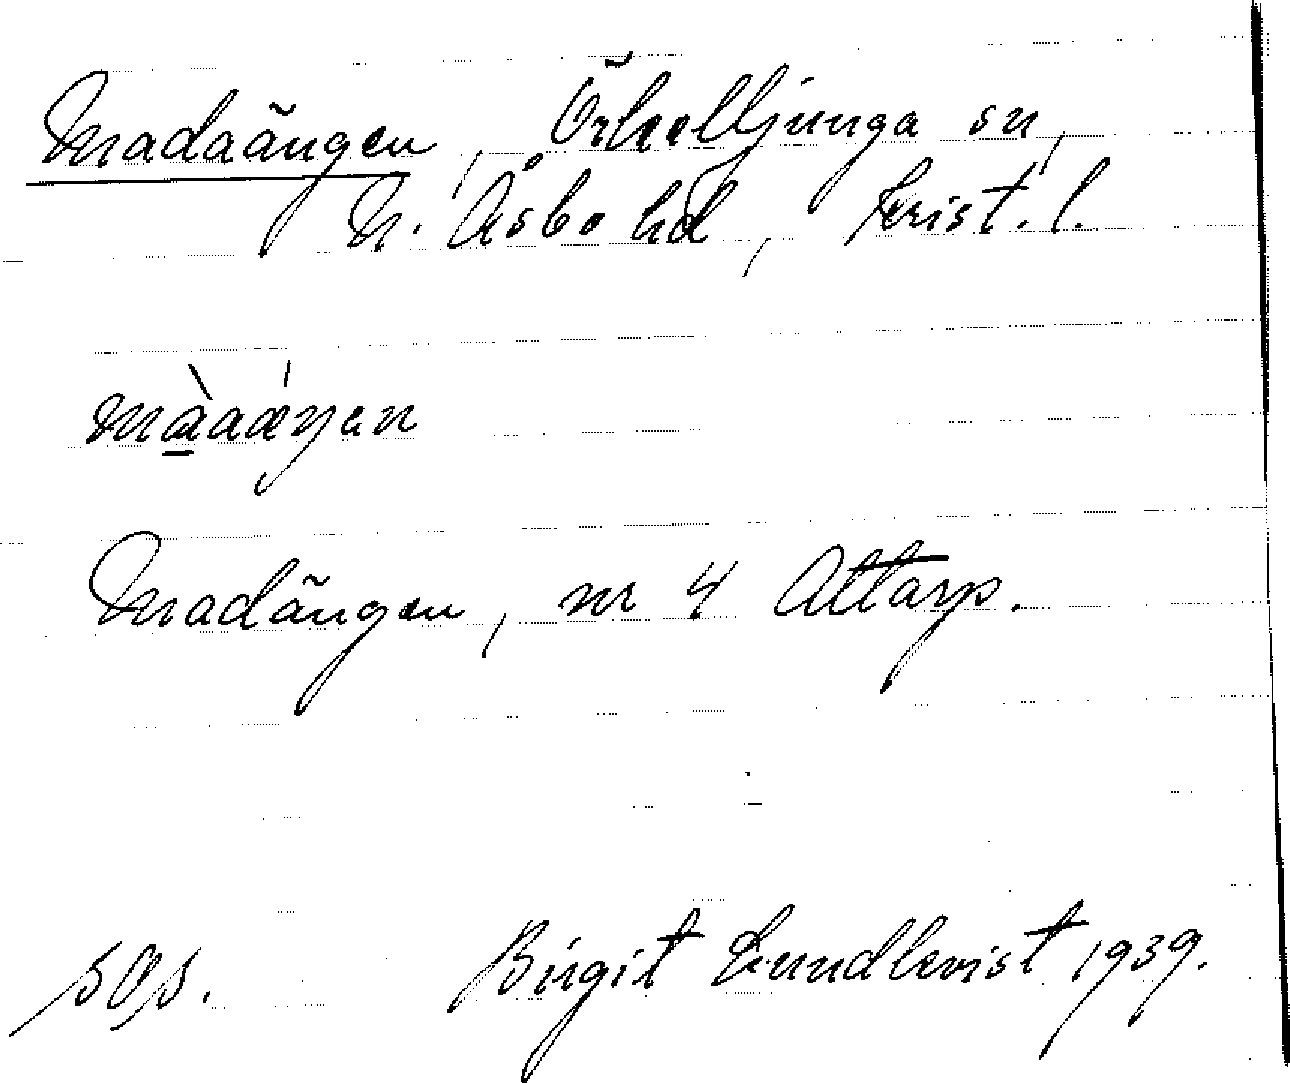 Madaängen, Örkelljunga sn,
N. Åsbo hd, Krist. l.
màaæŋen
Madängen, nr 4 Attarp.
sOs. Birgit Lundkvist 1939.